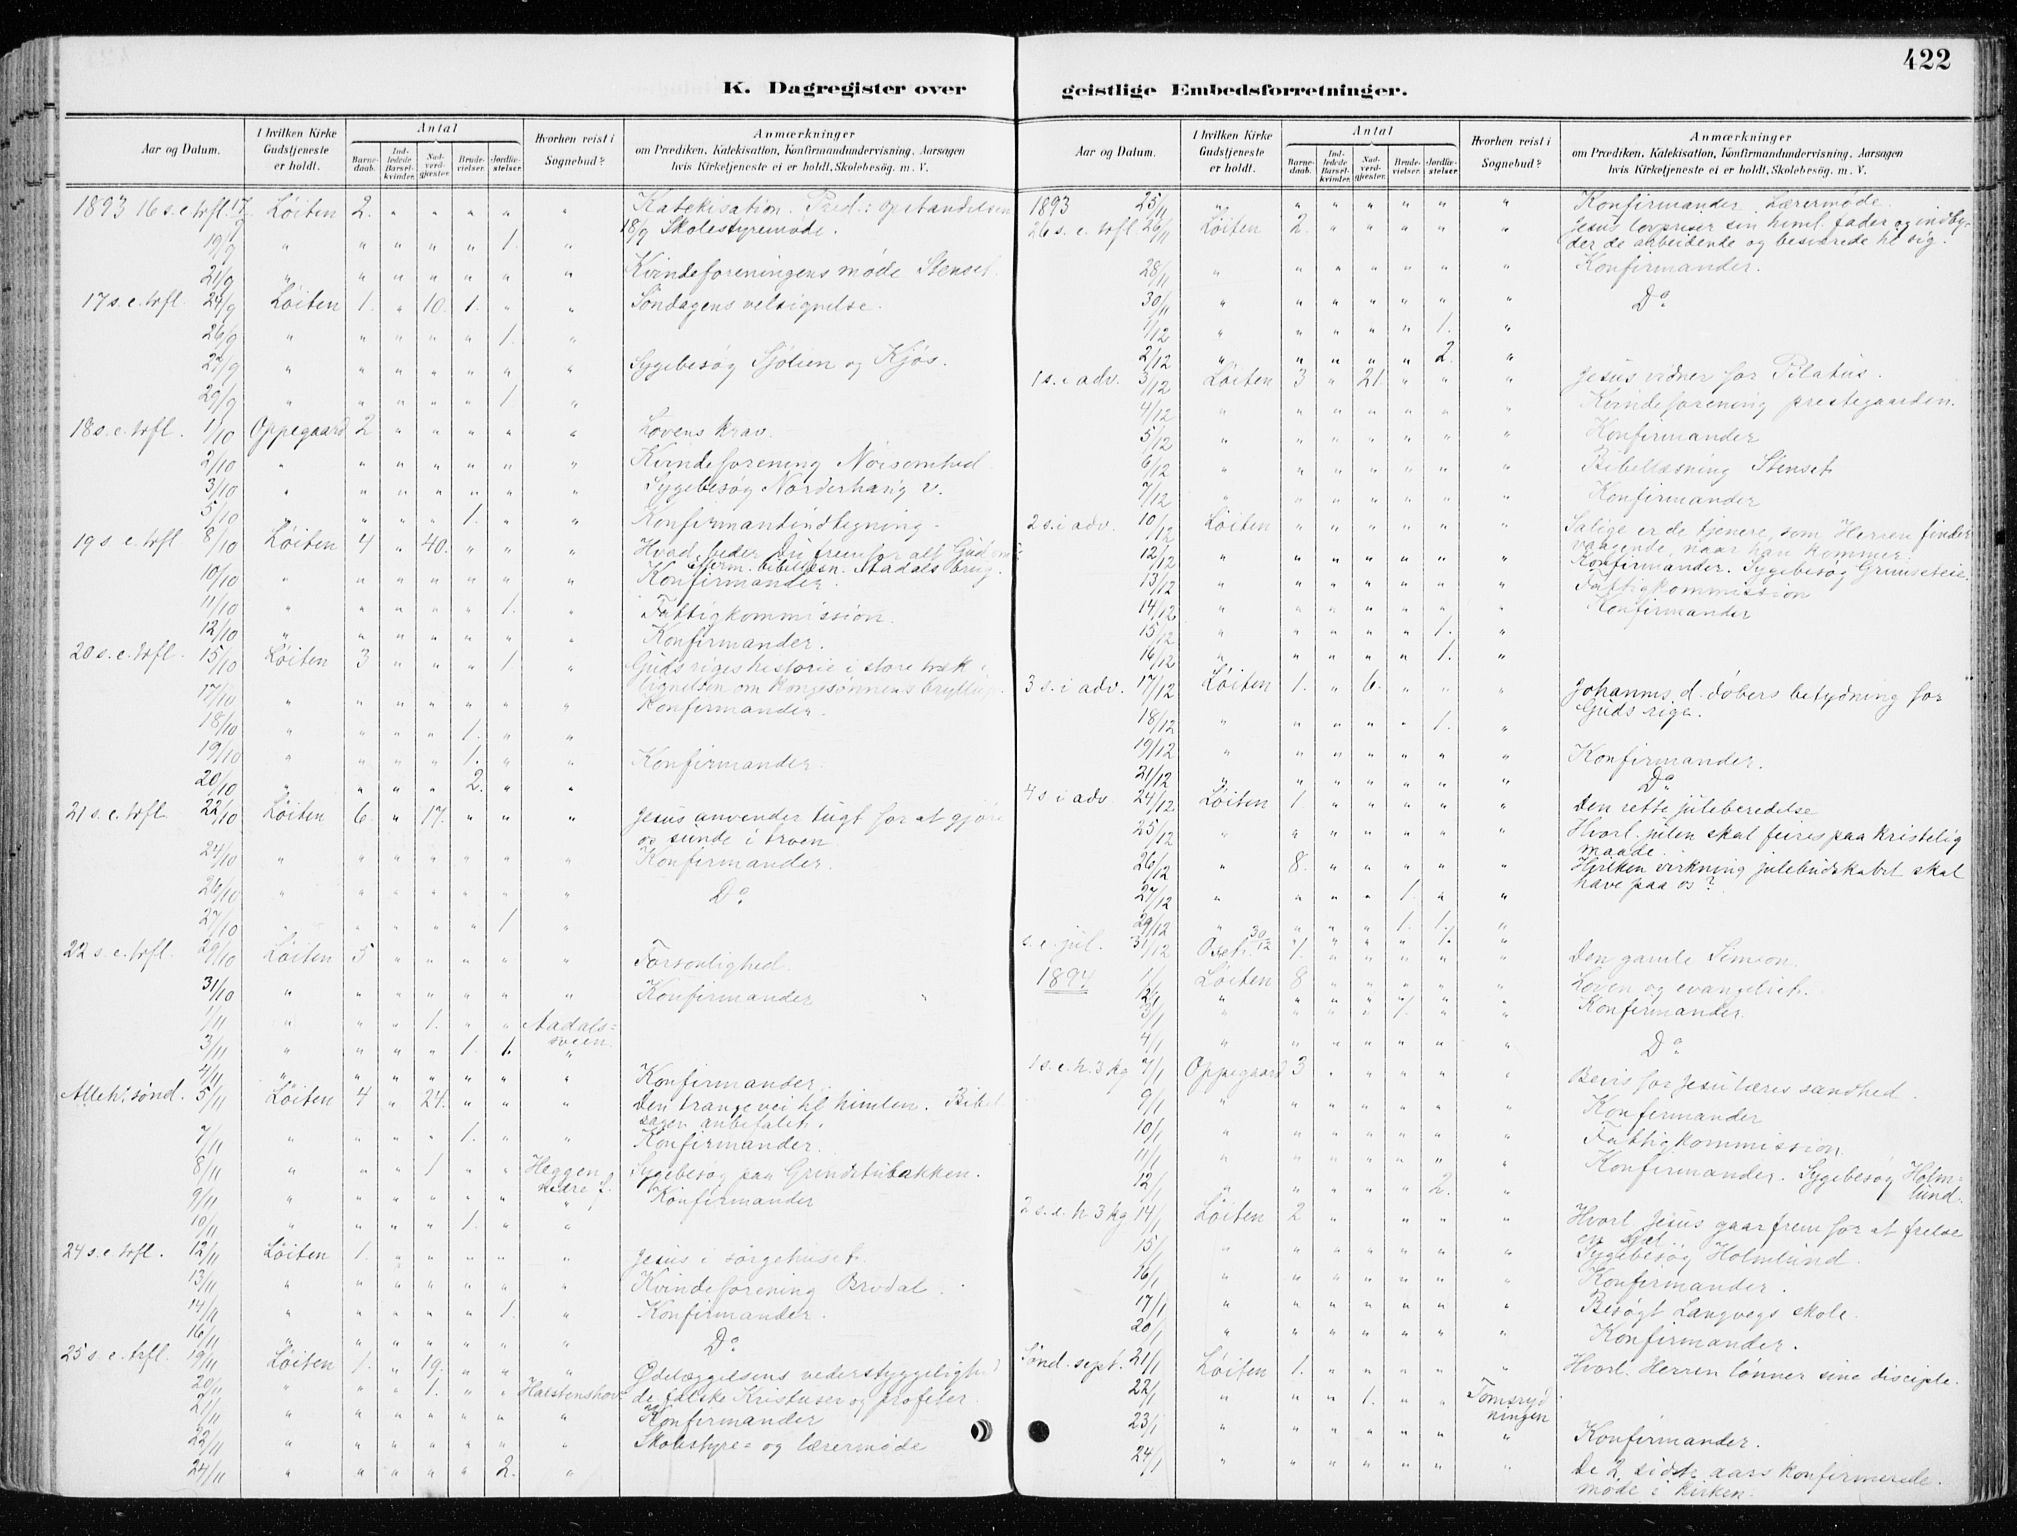 422
K. Dagregister over geistlige Embedsforretninger.
Aar og Datum.
I hvilken Kirke Gudstjeneste er holdt.
Antal
Barnedaab.
Indledede Barselkvinder.
Nadverdgjæster.
Brudevielser.
Jordfæstelser.
Hvorhen reist i Sognebud?
Anmærkninger
om Prædiken, Katekisation, Konfirmandundervisning, Aarsagen
hvis Kirketjeneste ei er holdt, Skolebesøg. m. V.
1893 16 s. e. trfl. 17/9 Løiten 2. " " " " " Katekisation. Præd.: opstandelsen
19/9 " " " " " 1. " 18/9 Skolestyremøde.
21/9 " " " " " " " Kvindeforeningens møde Stenset.
17 s. e. trfl. 24/9 Løiten 1. " 10. 1. " " Søndagens velsignelse.
26/9 " " " " " 1. "
" " " " " " " Sygebesøg Sjølien og Kjøs.
29/9 " " " " " 1 "
18 s. e. trfl. 1/10 Oppegaard 2 " " " " " Lovens krav.
2/10 " " " " " " " Kvindeforening Nøisomhed
3/10 " " " " " " " Sygebesøg Norderhaug v.
5/10 " " " " 1. " " Konfirmantindtegning.
19 s. e. trfl 8/10 Løiten 4 " 40. " " " Hvad beder Du fremfor alt Gud om
bibellæsn. Aadals brug.
10/10 " " " " " " " Konfirmander.
11/10 " " " " " 1. " Fattigkommission.
12/10 " " " " " " " Konfirmander.
20 s. e. trfl. 15/10 Løiten 3 " " " 1 " Guds riges historie i store træk i
lignelsen om Kongesønnens bryllup.
17/10 " " " " " " " Konfirmander.
18/10 " " " " 1. " "
19/10 " " " " 1. " " Konfirmander.
20/10 " " " " 2. " "
21 s. e. trfl. 22/10 Løiten 6. " 17. " " " Jesus anvender tugt for at gjøre
os sunde i troen
24/10 " " " " " " " Konfirmander.
26/10 " " " " " " " Do
27/10 " " " " " 1 "
22 s. e. trfl. 29/10 Løiten 5 " " " " " Forsonlighed.
31/10 " " " " " " " Konfirmander "
1/11 " " " 1. " " Aadals=
sveen.
3/11 " " " " 1. 1. "
4/11 " " " " " " " Konfirmander.
Alleh. sønd. 5/11 Løiten 4 " 24. " " " Den trange vei til himlen. Bibel
sagen anbefalet.
7/11 " " " " 1. " " Konfirmander.
8/11 " " " 1 " " Heggen Sygebesøg paa Grindstubakken.
nedre
9/11 " " " " " " " Konfirmander
10/11 " " " " 1. " "
24 s. e. trfl. 12/11 Løiten 1. " " " " " Jesus i sørgehuset.
13/11 " " " " " " " Kvindeforening Brodal.
14/11 " " " " " 1. " Konfirmander.
16/11 " " " " " " " Do
25 s. e. trfl. 19/11 Løiten 1. " 19. " " " Ødelæggelsens vederstyggelighed
20/11 " " " 1. " " Halstenshov de falske Kristuser og profeter.
21/11 " " " " " " " Konfirmander
22/11 " " " " " " " Skolestyre= og lærermøde
24/11 " " " " " 2. "
1893 25/11 " " " " " " " Konfirmander. Lærermøde.
26 s. e. trfl. 26/11 Løiten 2. " " " " " Jesus lovpriser sin himl. fader og indby-
der de arbeidende og besværede til sig.
28/11 " " " " " " " Konfirmander.
30/11 " " " " " " " Do
1/12 " " " " " 1. "
2/12 " " " " " 2. "
1 s. i adv. 3/12 Løiten 3 " 21. " " " Jesus vidner for Pilatus.
4/12 " " " " " " " Kvindeforening prestegaarden.
5/12 " " " " " " " Konfirmander
6/12 " " " " " " " Bibellæsning Stenset.
7/12 " " " " " " " Konfirmander
2 s. i adv. 10/12 Løiten " " " " " " Salige er de tjenere, som Herren finder
vaagende, naar han kommer.
12/12 " " " " " " " Konfirmander. Sygebesøg Grimseteie.
13/12 " " " " " " " Fattigkommission
14/12 " " " " " " " Konfirmander
15/12 " " " " " 1. "
16/12 " " " " " 1. "
3 s. i adv. 17/12 Løiten 1. " 6. " " " Johannes d. døbers betydning for
Guds rige.
18/12 " " " " " 1. "
19/12 " " " " " " " Konfirmander.
21/12 " " " " " " " Do
4 s i adv. 24/12 Løiten 1 " " " " " Den rette juleberedelse
25/12 " " " " " " " Hvorl. julen skal feires paa kristelig
maade.
26/12 " 8. " " " " " Hvilken virkning julebudskabet skal
have paa os?
27/12 " " " " 1. " "
29/12 " " " " 1. 1. "
s. e. jul. 31/12 Oset. 30/12 1. " " " 1. " Den gamle Simeon.
1894 1/1 Løiten 8 " " " " " Loven og evangeliet.
2/1
3/1 " " " " 1. " " Konfirmander.
4/1 " " " " " " " Do
1 s. e. h. 3 kg 7/1 Oppegaard 3 " " " " " Bevis for Jesu læres sandhed.
9/1 " " " " " " " Konfirmander
10/1 " " " " " " " Fattigkommission.
11/1 " " " " " " " Konfirmander. Sygebesøg Holm-
lund.
12/1 " " " " " 2. "
2 s. e. h 3 kg 14/1 Løiten 2 " " " " " Hvorl. Jesus gaar frem for at frelse
en sjæl.
15/1 " " " " " " " Sygebesøg Holmlund.
16/1 " " " " " " " Konfirmander.
17/1 " " " " " " " Besøgt Langvegs skole.
20/1 " " " " " " " Konfirmander.
Sønd. sept. 21/1 Løiten 1. " " " " " Hvorl. Herren lønner sine disciple.
22/1 " " " 1. " " Tomsryd
ningen
23/1 " " " " " " " Konfirmander.
24/1 " " " " " " " De 2 sidste aars konfirmerede
møde i kirken.